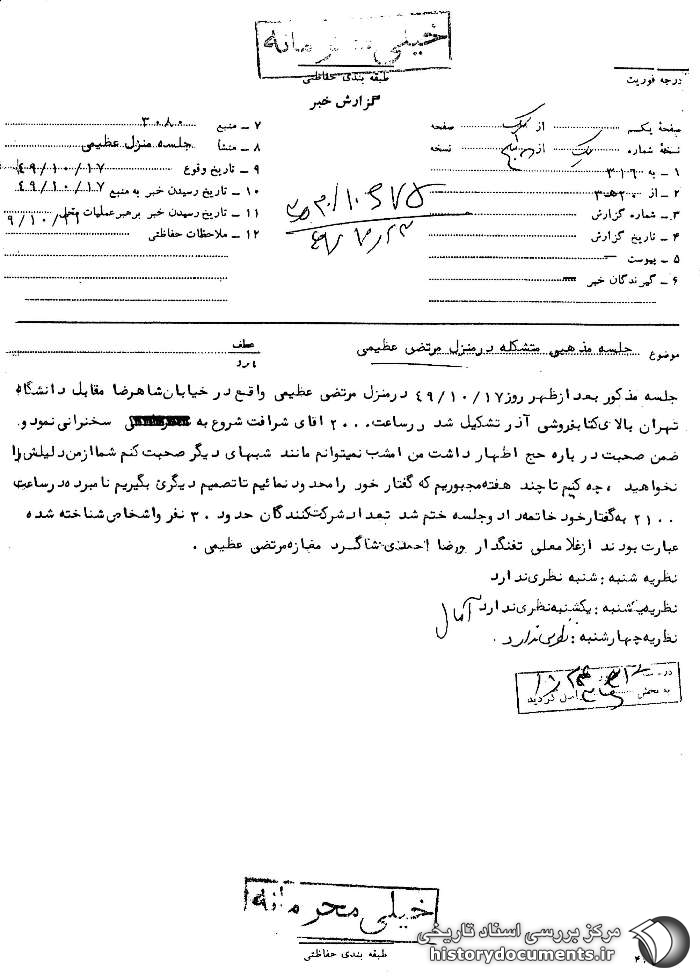 خیلی محرمانه
طبقه بندی حفاظتی
درجه فوریت
گزارش خبر
صفحه یکم از یک صفحه
نسخه شماره یک از نسخه
۱ ـ به ۳۱۶
۲ ـ از ۲۰ه۳
۳ ـ شماره گزارش
۴ ـ تاریخ گزارش
۵ ـ پیوست
۶ ـ گیرندگان خبر
۷ ـ منبع ۳۰۸۰
۸ ـ منشأ جلسه منزل عظیمی
۹ ـ تاریخ وقوع ۴۹/۱۰/۱۷
۱۰ ـ تاریخ رسیدن خبر به منبع ۴۹/۱۰/۱۷
۱۱ ـ تاریخ رسیدن خبر برهبر عملیات
۱۲ ـ ملاحظات حفاظتی
موضوع جلسه مذهبی متشکله درمنزل مرتضی عظیمی
عطف
جلسه مذکور بعد ازظهر روز ۴۹/۱۰/۱۷ درمنزل مرتضی عظیمی واقع در خیابان شاهرضا مقابل دانشگاه
تهران بالای کتابفروشی آذر تشکیل شد درساعت ۲۰۰۰ اقای شرافت شروع به سخنرانی نمود و
ضمن صحبت درباره حج اظهار داشت من امشب نمیتوانم مانند شبهای دیگر صحبت کنم شما از من دلیلش را
نخواهید ، چه کنیم تا چند هفته مجبوریم که گفتار خود را محدود نمائیم تا تصمیم دیگری بگیریم نامبرده درساعت
۲۱۰۰ به گفتار خود خاتمه داد و جلسه ختم شد تعداد شرکت کنندگان حدود ۳۰ نفر و اشخاص شناخته شده
عبارت بودند از غلامعلی تفنگدار ورضا احمدی شاگرد مغازه مرتضی عظیمی .
نظریه شنبه : شنبه نظری ندارد
نظریه یکشنبه : یکشنبه نظری ندارد آمال
نظریه چهارشنبه : نظری ندارد .
خیلی محرمانه
طبقه بندی حفاظتی
مرکز بررسی اسناد تاریخی
historydocuments.ir